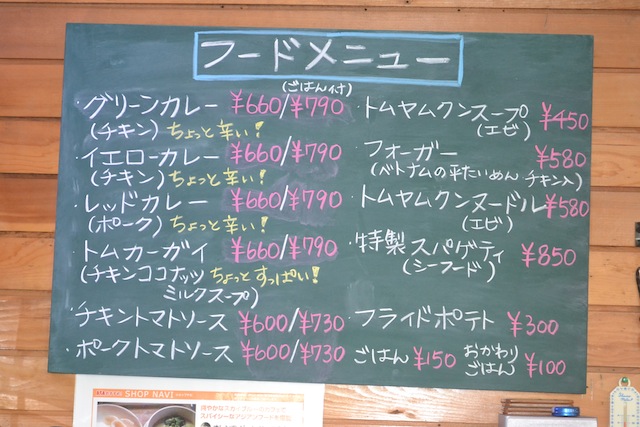 フードメニュー
(ごはん付)
・グリーンカレー ¥660/¥790
(チキン) ちょっと辛い!
・イエローカレー ¥660/¥790
(チキン) ちょっと辛い!
・レッドカレー ¥660/¥790
(ポーク) ちょっと辛い!
・トムカーガイ ¥660/¥790
(チキンココナッツ ちょっとすっぱい!
ミルクスープ)
・チキントマトソース ¥600/¥730
・ポークトマトソース ¥600/¥730
・トムヤムクンスープ ¥450
(エビ)
・フォーガー ¥580
(ベトナムの平たいめん・チキン入)
・トムヤムクンヌードル ¥580
(エビ)
・特製スパゲティ ¥850
(シーフード)
・フライドポテト ¥300
・ごはん ¥150 おかわりごはん ¥100
SHOP NAVI